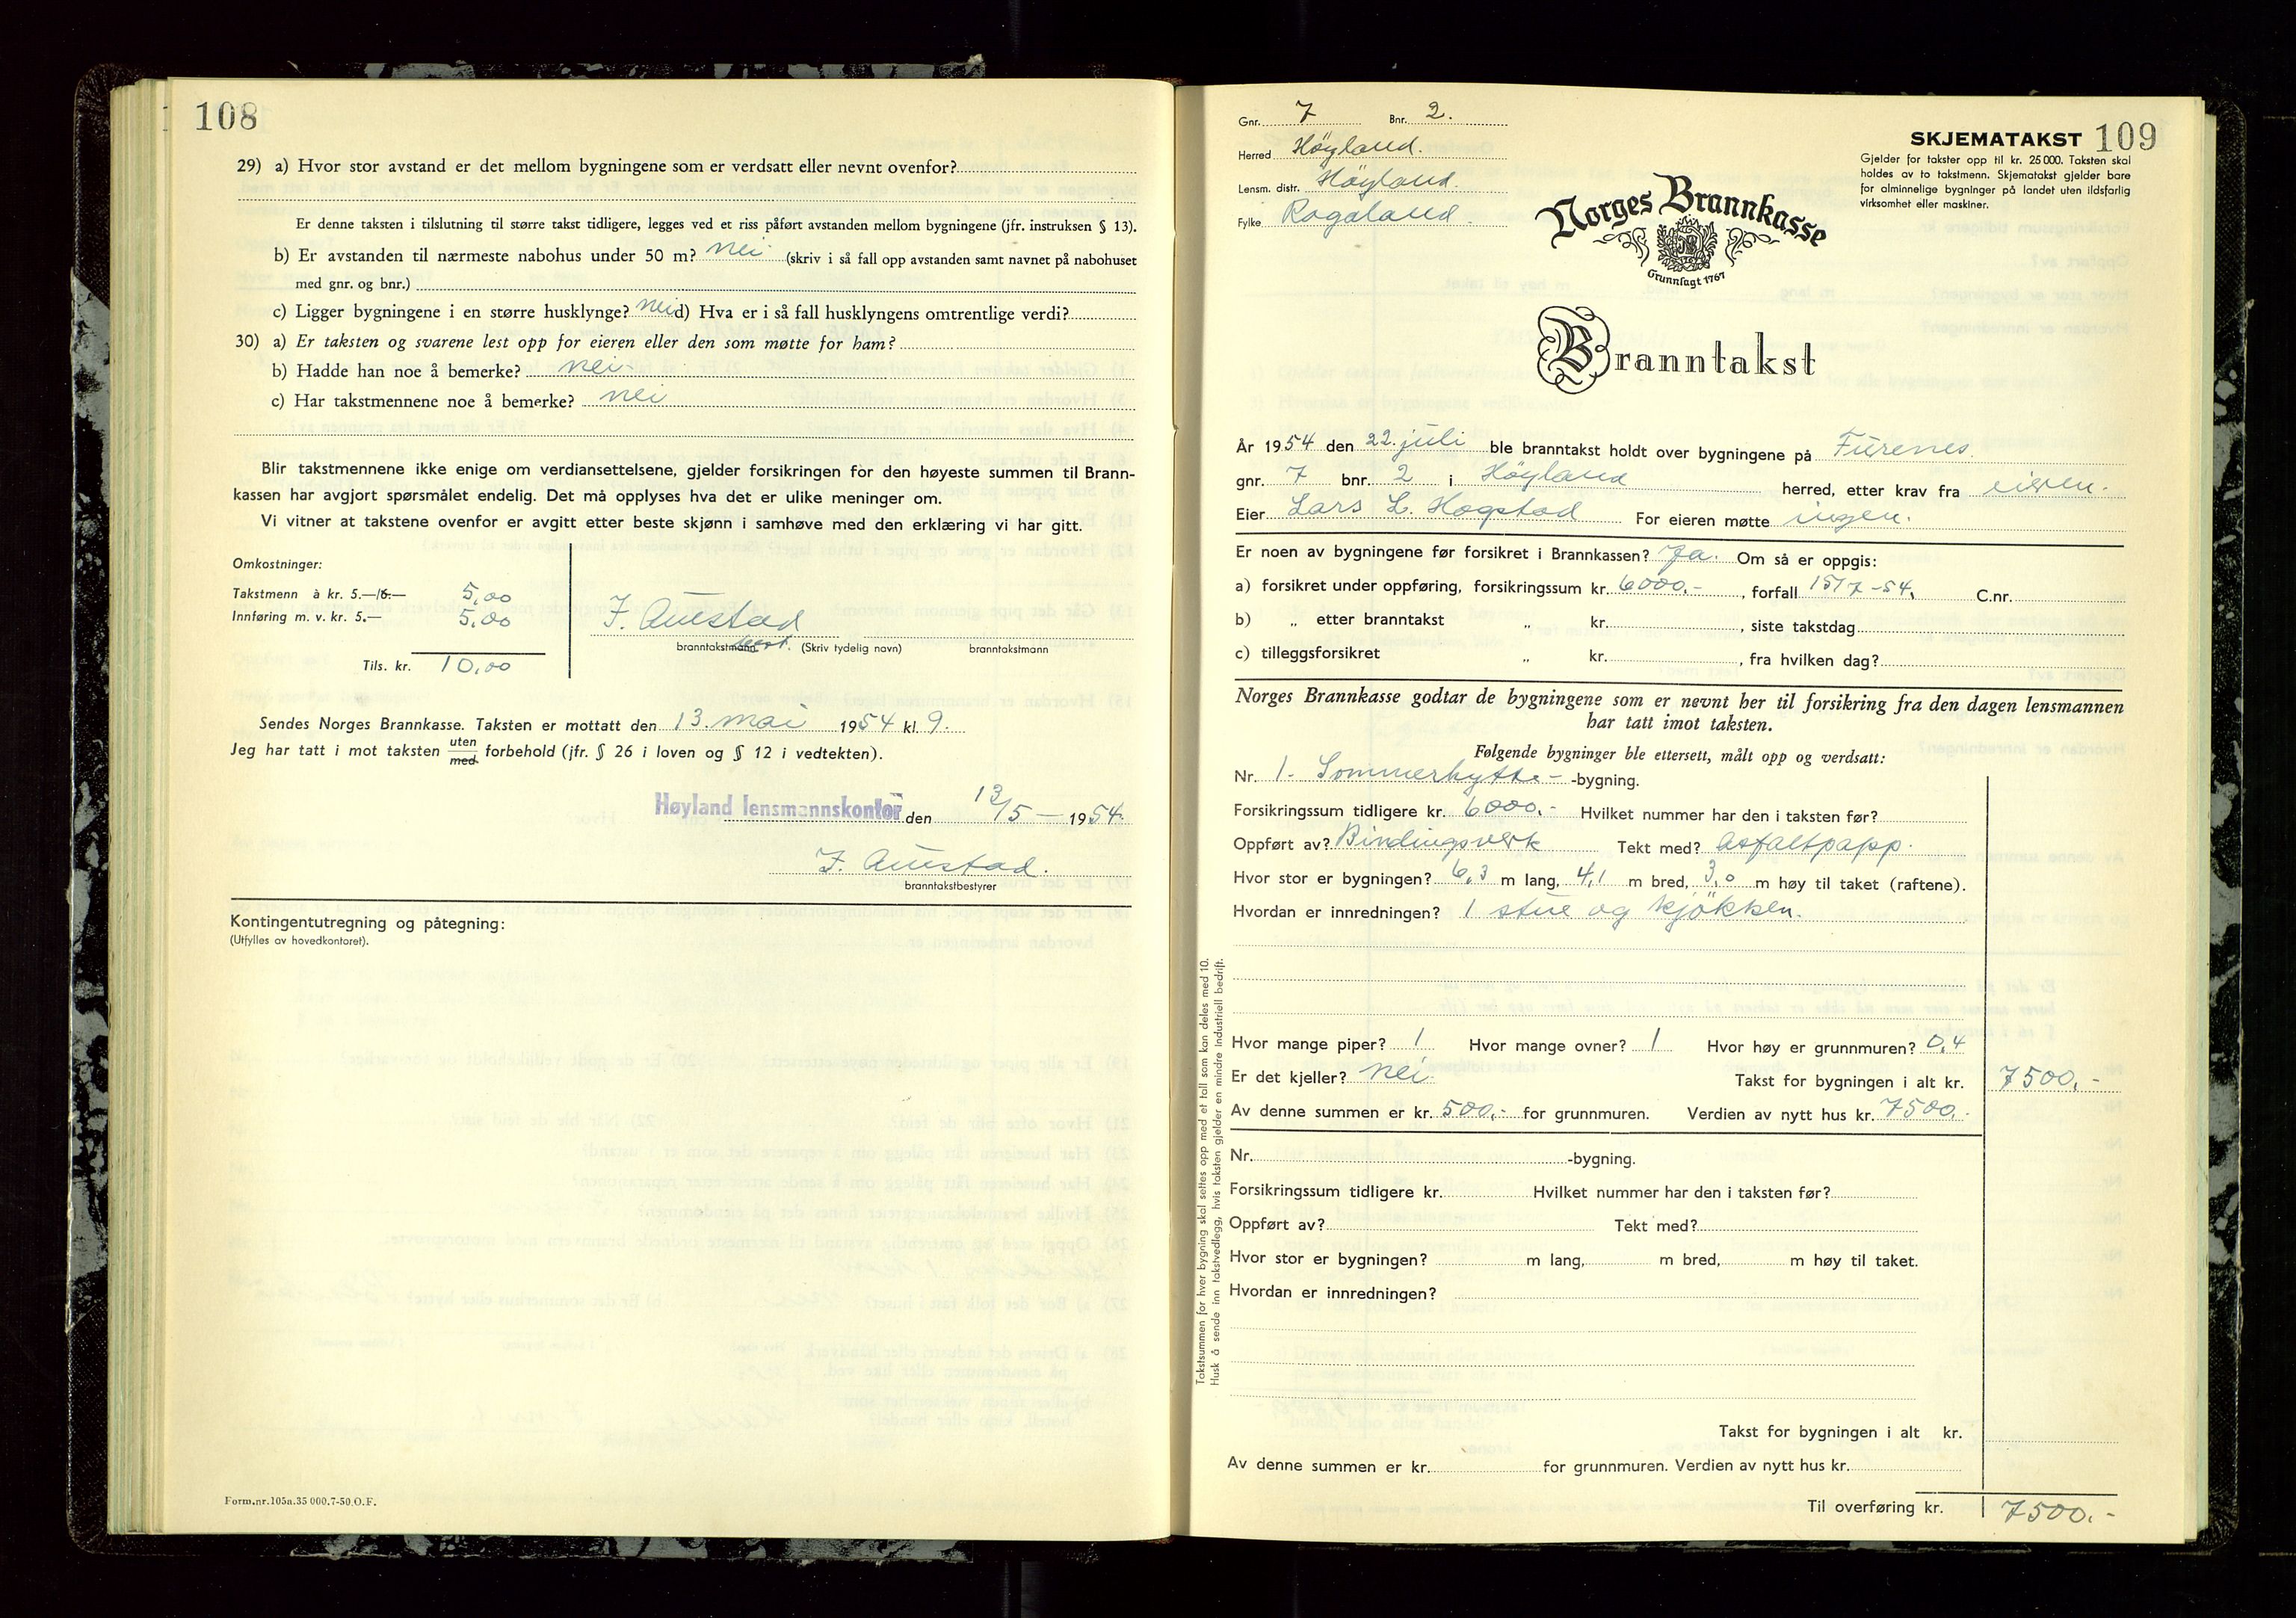 108
29) a) Hvor stor avstand er det mellom bygningene som er verdsatt eller nevnt ovenfor?
Er denne taksten i tilslutning til større takst tidligere, legges ved et riss påført avstanden mellom bygningene (jfr. instruksen § 13).
b) Er avstanden til nærmeste nabohus under 50 m? nei (skriv i så fall opp avstanden samt navnet på nabohuset
med gnr. og bnr.)
c) Ligger bygningene i en større husklynge? nei d) Hva er i så fall husklyngens omtrentlige verdi?
30) a) Er taksten og svarene lest opp for eieren eller den som møtte for ham?
b) Hadde han noe å bemerke? nei
c) Har takstmennene noe å bemerke? nei
Blir takstmennene ikke enige om verdiansettelsene, gjelder forsikringen for den høyeste summen til Brann-
kassen har avgjort spørsmålet endelig. Det må opplyses hva det er ulike meninger om.
Vi vitner at takstene ovenfor er avgitt etter beste skjønn i samhøve med den erklæring vi har gitt.
Omkostninger:
Takstmenn à kr. 5.—/6.— 5,00
Innføring m. v. kr. 5.— 5,00
Tils. kr. 10,00
F. Auestad
branntakstmann best. (Skriv tydelig navn) branntakstmann
Sendes Norges Brannkasse. Taksten er mottatt den 13. mai 1954 kl. 9.
Jeg har tatt i mot taksten uten med forbehold (jfr. § 26 i loven og § 12 i vedtekten).
Høyland lensmannskontor den 13/5 — 1954.
F. Auestad.
branntakstbestyrer
Kontingentutregning og påtegning:
(Utfylles av hovedkontoret).
Form.nr.105a.35 000.7-50.O.F.
Gnr. 7 Bnr. 2.
Herred Höyland.
Lensm. distr. Höyland.
Fylke Rogaland.
SKJEMATAKST 109
Gjelder for takster opp til kr. 25 000. Taksten skal
holdes av to takstmenn. Skjematakst gjelder bare
for alminnelige bygninger på landet uten ildsfarlig
virksomhet eller maskiner.
Norges Brannkasse
Grunnlagt 1767
Branntakst
År 1954 den 22. juli ble branntakst holdt over bygningene på Furenes
gnr. 7 bnr. 2 i Höyland herred, etter krav fra eieren.
Eier Lars L. Hogstad For eieren møtte ingen.
Er noen av bygningene før forsikret i Brannkassen? Ja. Om så er oppgis:
a) forsikret under oppføring, forsikringssum kr. 6000.-, forfall 15/7-54. C.nr.
b) „ etter branntakst „ kr. , siste takstdag
c) tilleggsforsikret „ kr. , fra hvilken dag?
Norges Brannkasse godtar de bygningene som er nevnt her til forsikring fra den dagen lensmannen
har tatt imot taksten.
Følgende bygninger ble ettersett, målt opp og verdsatt:
Nr. 1. Sommerhytte- -bygning.
Forsikringssum tidligere kr. 6000.- Hvilket nummer har den i taksten før?
Oppført av? Bindingsverk Tekt med? Asfaltpapp.
Hvor stor er bygningen? 6,3 m lang, 4,1 m bred, 3,0 m høy til taket (raftene).
Hvordan er innredningen? 1 stue og kjökken.
Hvor mange piper? 1 Hvor mange ovner? 1 Hvor høy er grunnmuren? 0,4
Er det kjeller? nei. Takst for bygningen i alt kr. 7500.-
Av denne summen er kr. 500.- for grunnmuren. Verdien av nytt hus kr. 7500.-
Nr. -bygning.
Forsikringssum tidligere kr. Hvilket nummer har den i taksten før?
Oppført av? Tekt med?
Hvor stor er bygningen? m lang, m bred, m høy til taket.
Hvordan er innredningen?
Takst for bygningen i alt kr.
Av denne summen er kr. for grunnmuren. Verdien av nytt hus kr.
Til overføring kr. 7500.-
Takstsummen for hver bygning skal settes opp med et tall som kan deles med 10.
Husk å sende inn takstvedlegg, hvis taksten gjelder en mindre industriell bedrift.